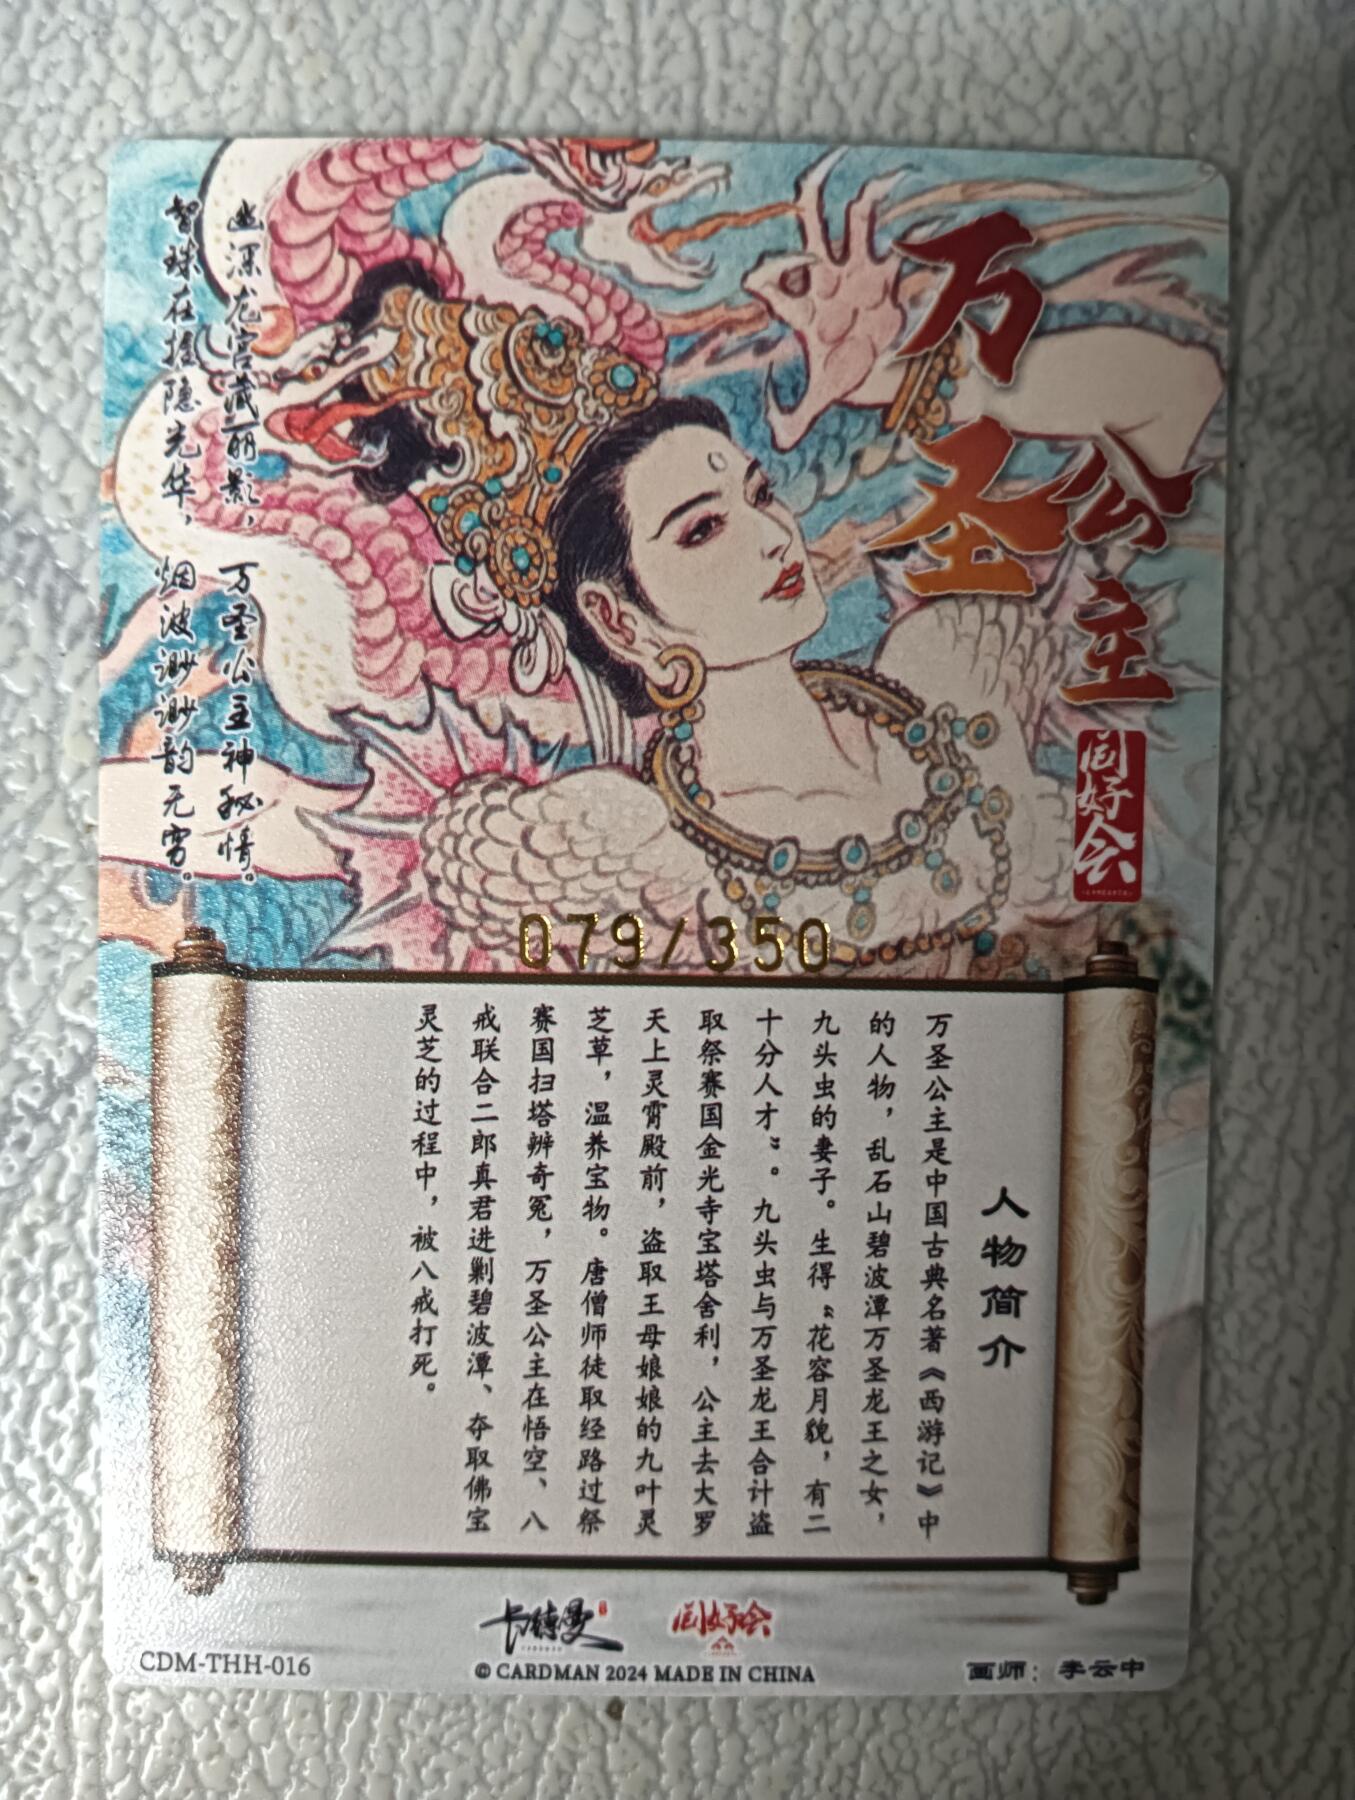 万圣
公主
闺好会
幽深龙宫藏丽影，万圣公主神秘情。
智珠在握隐光华，烟波渺渺韵无穷。
079/350
人物简介
万圣公主是中国古典名著《西游记》中
的人物，乱石山碧波潭万圣龙王之女，
九头虫的妻子。生得“花容月貌，有二
十分人才”。九头虫与万圣龙王合计盗
取祭赛国金光寺宝塔舍利，公主去大罗
天上灵霄殿前，盗取王母娘娘的九叶灵
芝草，温养宝物。唐僧师徒取经路过祭
赛国扫塔辨奇冤，万圣公主在悟空、八
戒联合二郎真君进剿碧波潭、夺取佛宝
灵芝的过程中，被八戒打死。
卡德曼 闺好会
CDM-THH-016
© CARDMAN 2024 MADE IN CHINA
画师：李云中